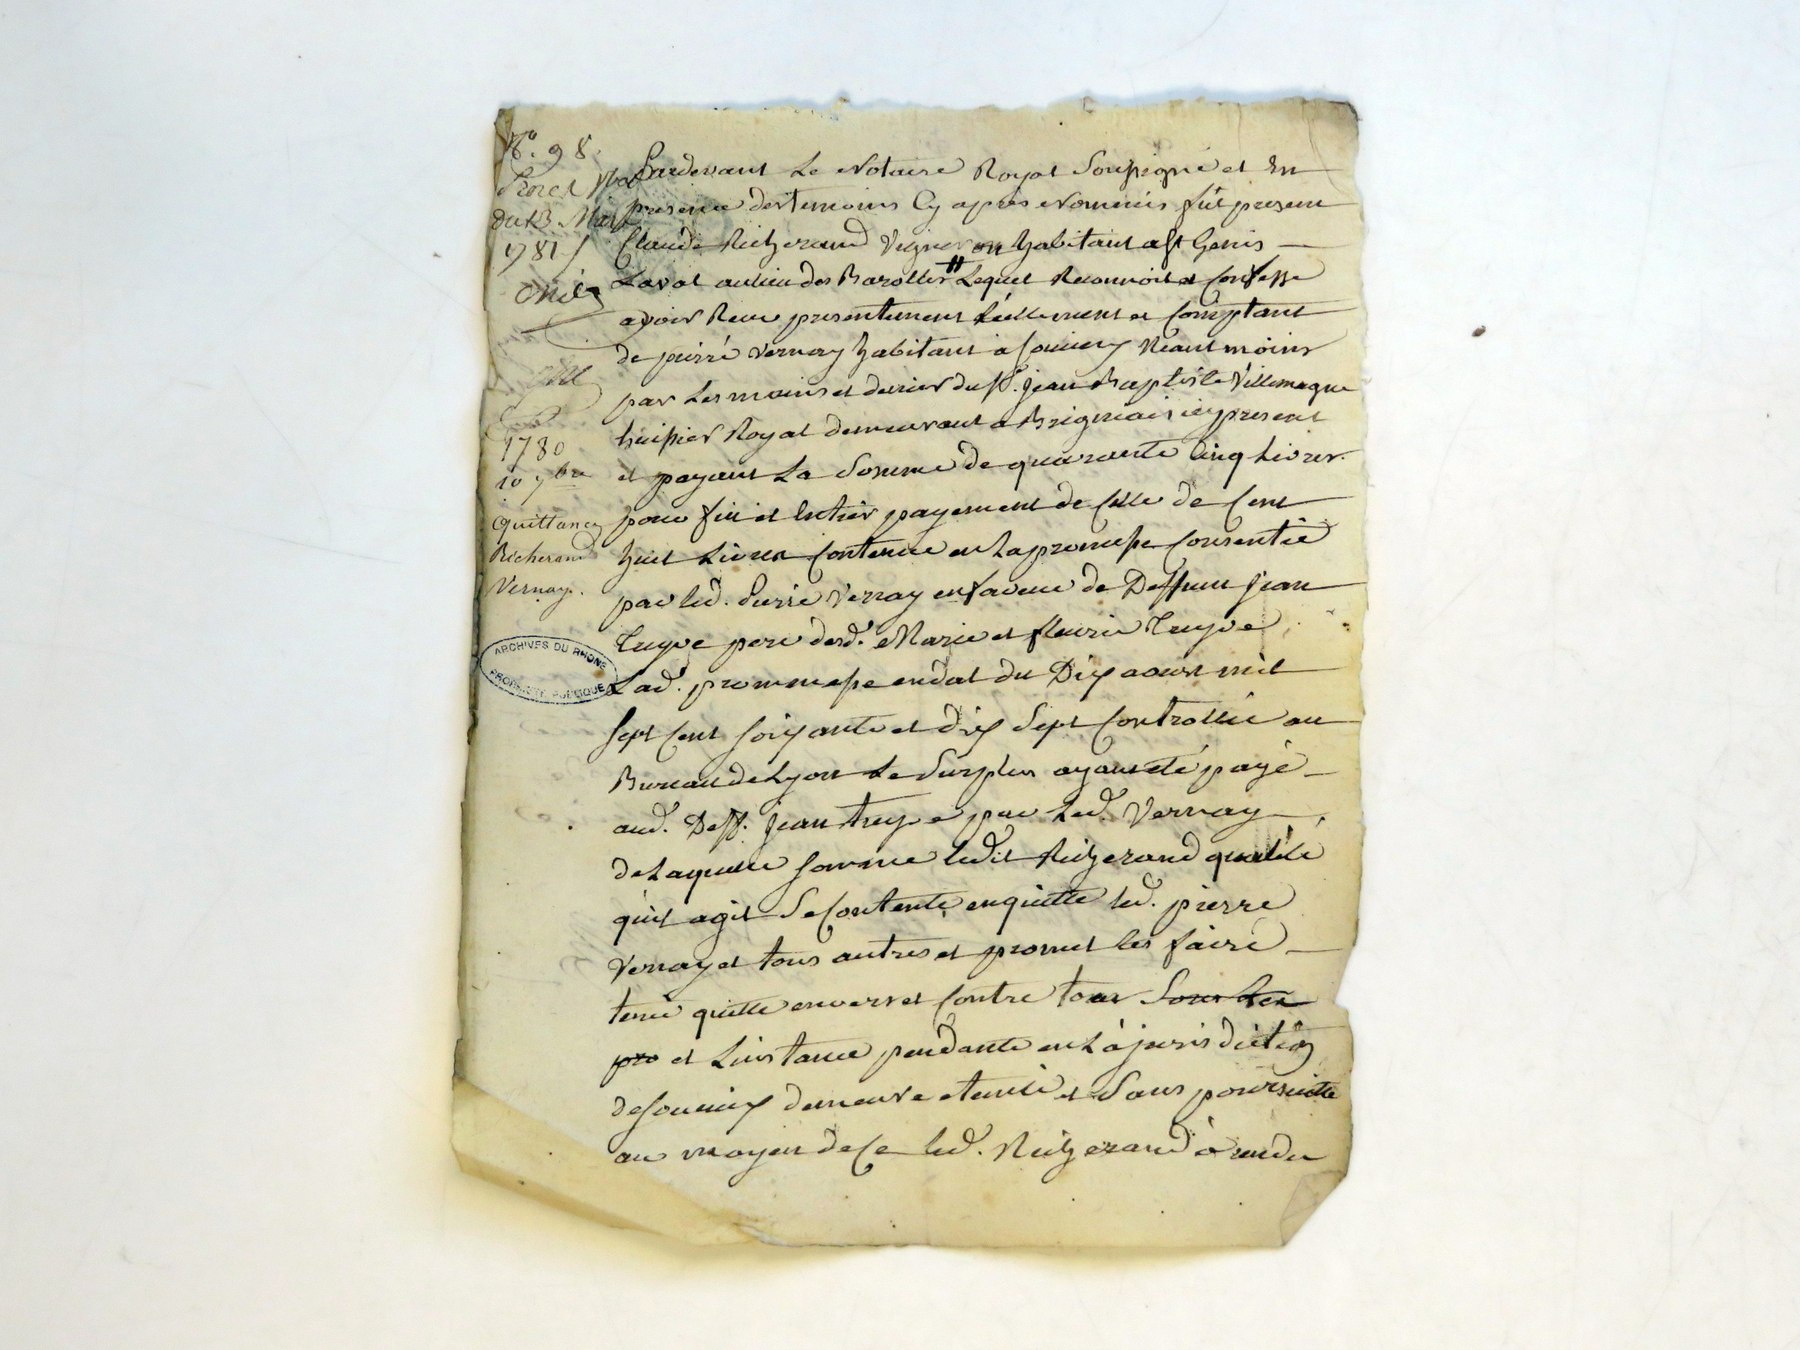 N°. 98.
du 13. Mars
1781
1780
10 7bre
Quittance
Richerand
Vernay.
ARCHIVES DU RHONE
PROPRIETE PUBLIQUE
Pardevant Le Notaire Royal Soussigné et En
presence des temoins Cy apres Nommés fut present
Claude Richerand Vigneron habitant a St Genis
Laval au lieu des Barolles # Lequel Reconnoit et Confesse
avoir Recu presentement Réellement et Comptant
de pierre Vernay habitant a Soucieu Neantmoins
par Les mains et denier du Sr. jean Baptiste Villemagne
huissier Royal demeurant a Brignais icy present
et payant La Somme de quarante Cinq Livres
pour fin et Entier payement de Celle de Cent
huit Livres Contenue en La promesse Consentie
par led. Pierre Vernay en faveur de Deffunt Jean
Truyve pere desd. Marie et fleurie Truyve
Lad. prommesse en dat du Dix aoust mil
Sept Cent Soixante et dix Sept Controllée au
Bureau de Lyon Le Surplus ayant eté payé
aud. Deff. Jean truyve par Led. Vernay
de Laquelle Somme ledit Richerand qualité
quil agit Se Contente, en quitte led. pierre
Vernay et tous autres et promet les faire
tenir quitte envers et Contre tous Sous Les
pro et Linstance pendante en La jurisdiction
de Soucieu demeure eteinte et Sans poursuitte
au moyen de Ce led. Richerand a rendu